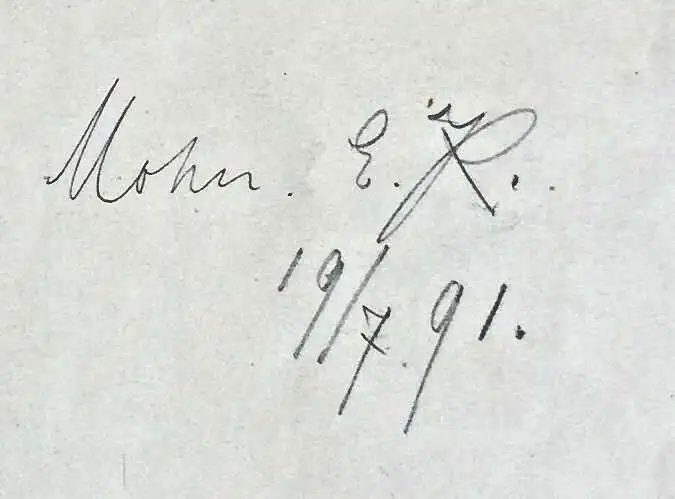 Mohn. E. K.
19/7 91.